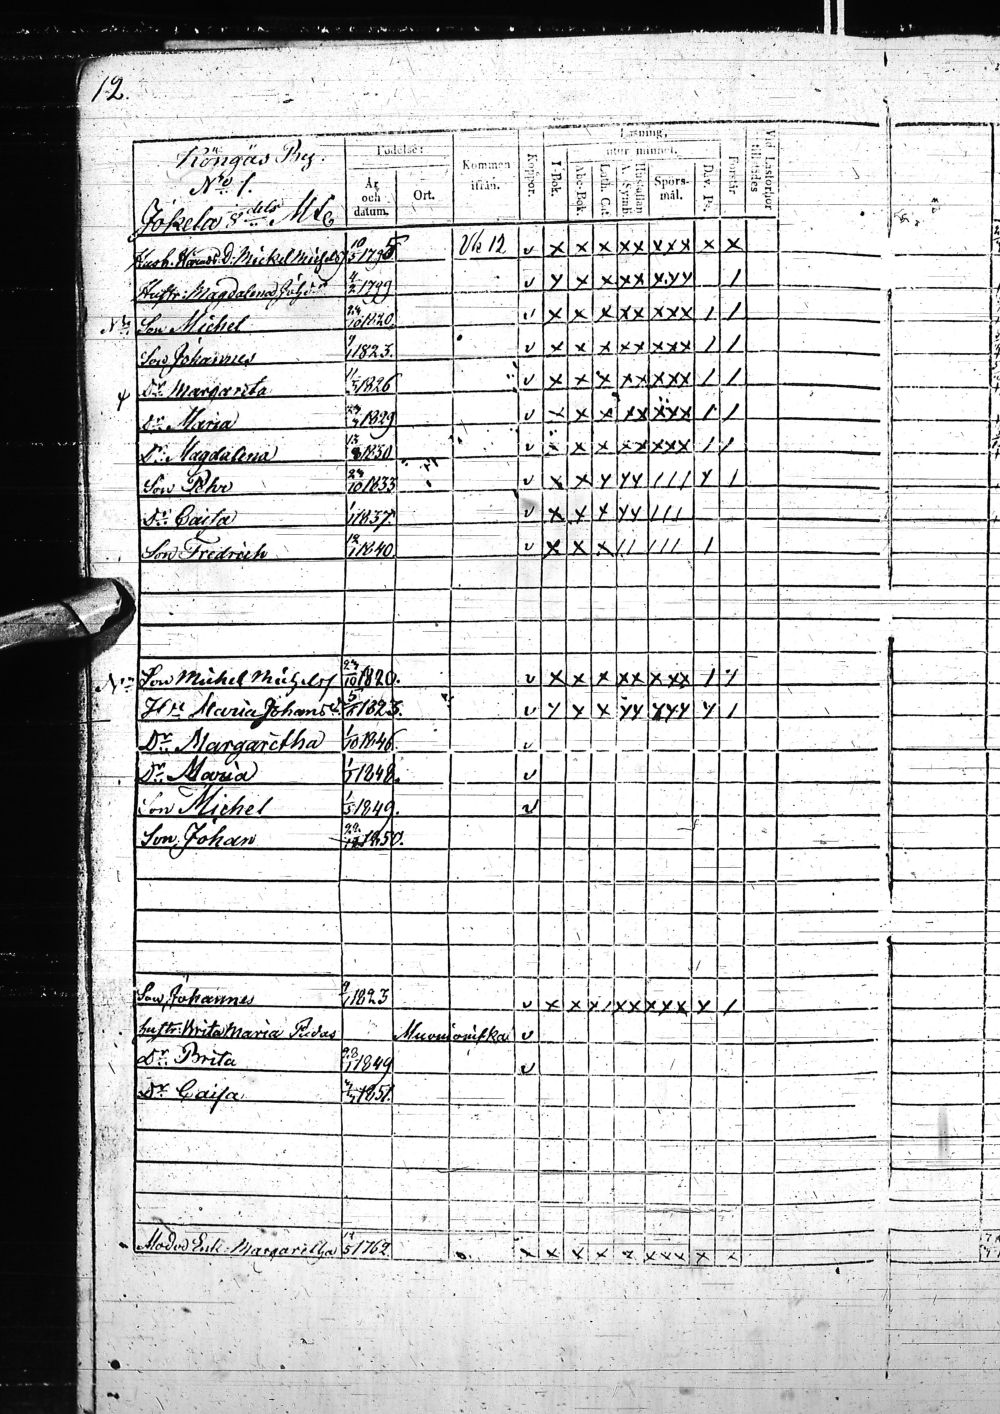 12.
Köngäs
No 1.
Jokela
Födelse:
År och datum.
Ort.
Kommen ifrån.
Koppor.
Läsning,
utur minnet.
I Bok.
Abc-Bok.
Luth. Cat
Hustaflan A. Symb.
Spörs-mål.
Dav. Ps.
Förstår
Vid Läsförhör tillstädes
Mickel 10/5 1795 Vk 12 v x x x xx xxx x x
Hustr: Magdalena 4/2 1799 v x x x xx xxx /
Son Michel 23/10 1820. v x x x xx xxx / /
Son Johannes 9/1 1823. v x x x xx xxx / /
Dr Margareta 11/5 1826 v x x x xx xxx / /
Dr Maria 1829 v x x x xx xxx / /
Dr Magdalena 13/8 1830 v x x x xx xxx / /
Son Pehr 23/10 1833 v x x x xx /// x /
Dr Caisa 1/1 1837. v x x x xx ///
Son Fredrich 12/1 1840. v x x x // /// /
Son Michel Michelss 23/10 1820. v x x x xx xxx / /
Hu Maria Johansd 1823. v x x x xx xxx x /
Dr Margaretha 1/10 1846 v
Dr Maria 1848. v
Son Michel 1/5 1849. v
Son Johan 29/12 1850.
Son Johannes 9/1 1823 v x x x / xx xxx x /
hustr: Brita Maria Muonioniska v
Dr Brita 28/1 1849 v
Dr Caisa 1851.
Modod Enk: Margaretha 1762 x x x x x xxx x